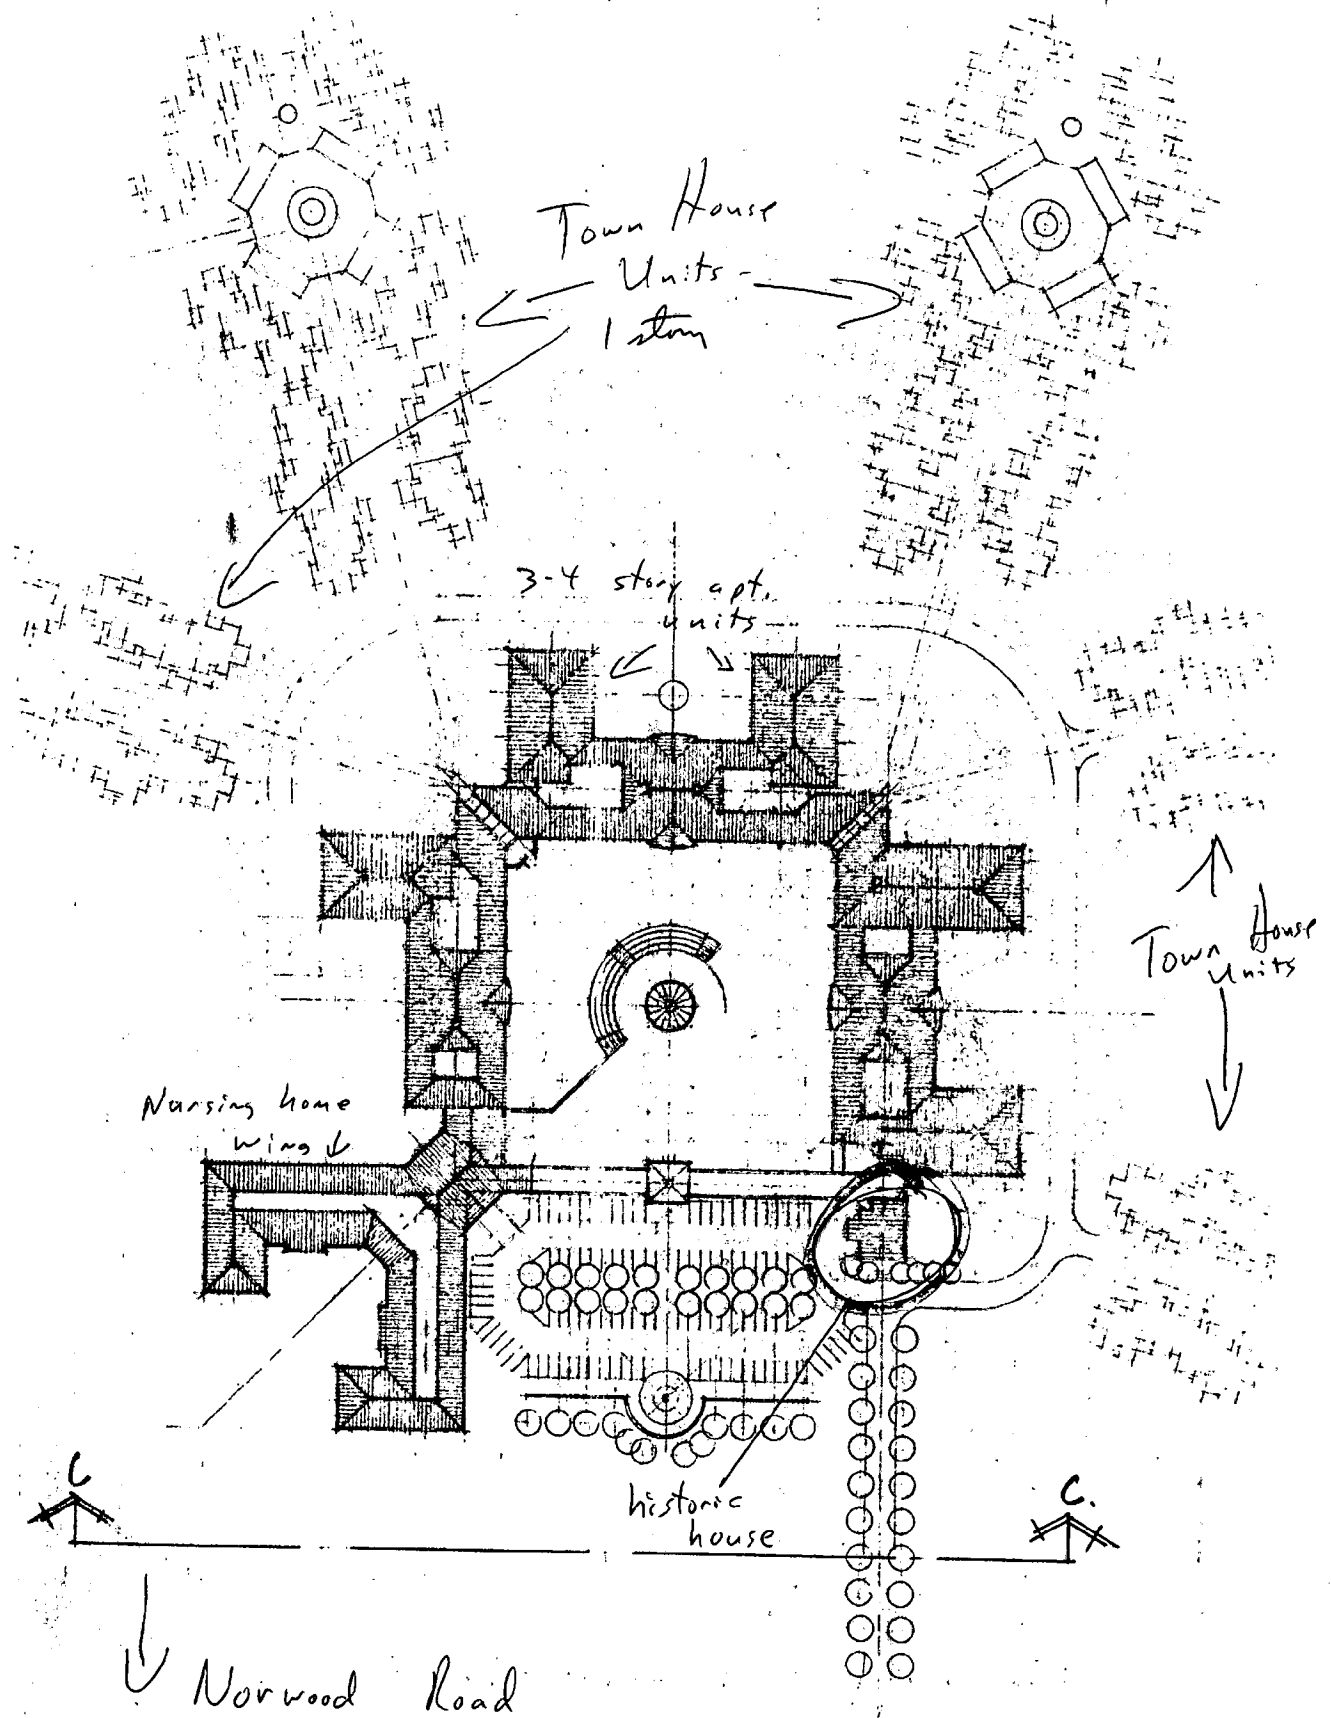 Town House
Units -
1 story
3-4 story apt.
units
Town House
Units
Nursing home
wing
historic
house
C
C.
Norwood Road